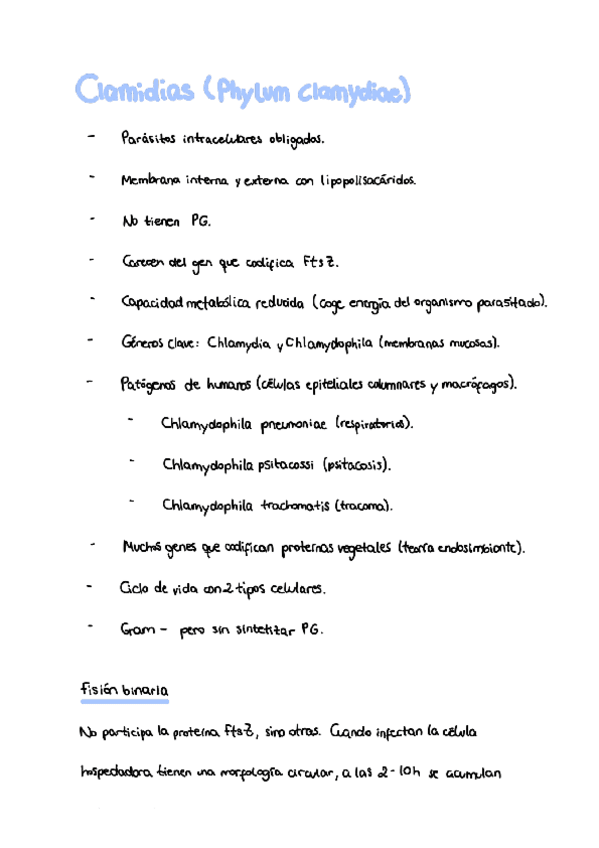 Clamidias (Phylum clamydiae)
- Parásitos intracelulares obligados.
- Membrana interna y externa con lipopolisacáridos.
- No tienen PG.
- Carecen del gen que codifica FtsZ.
- Capacidad metabólica reducida (coge energía del organismo parasitado).
- Géneros clave: Chlamydia y Chlamydophila (membranas mucosas).
- Patógenos de humanos (células epiteliales columnares y macrófagos).
- Chlamydophila pneumoniae (respiratorias).
- Chlamydophila psitacossi (psitacosis).
- Chlamydophila trachomatis (tracoma).
- Muchos genes que codifican proteínas vegetales (teoría endosimbionte).
- Ciclo de vida con 2 tipos celulares.
- Gram - pero sin sintetizar PG.
Fisión binaria
No participa la proteína FtsZ, sino otras. Cuando infectan la célula
hospedadora tienen una morfología circular, a las 2-10h se acumulan